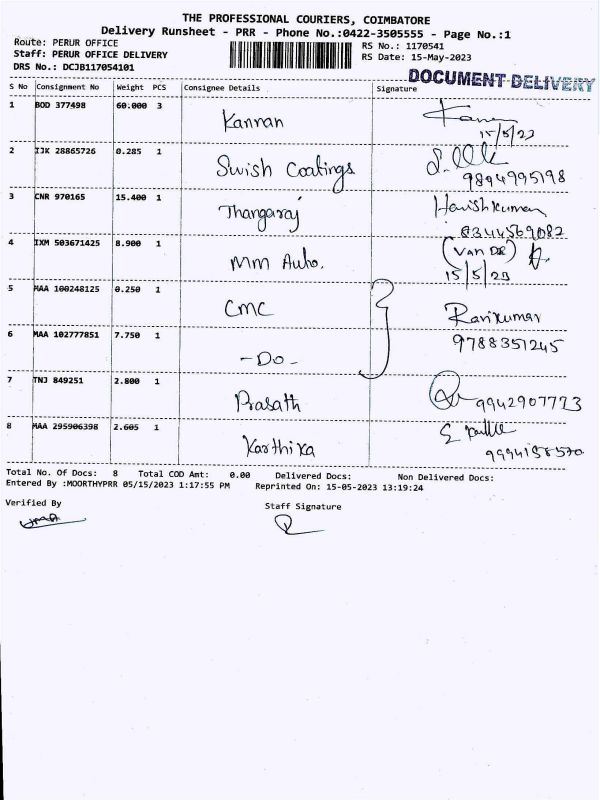 THE PROFESSIONAL COURIERS, COIMBATORE
Delivery Runsheet - PRR - Phone No.:0422-3505555 - Page No.:1
Route: PERUR OFFICE
Staff: PERUR OFFICE DELIVERY
DRS No.: DCJB117054101
RS No.: 1170541
RS Date: 15-May-2023
DOCUMENT DELIVERY
S No Consignment No Weight PCS Consignee Details Signature
1 BOD 377498 60.000 3 Kannan
15/5/23
2 IJK 28865726 0.285 1 Swish Coatings
9894995198
3 CNR 970165 15.400 1 Thangaraj Harishkumar
8344569082
4 IXM 503671425 8.900 1 MM Auto.
15/5/23
5 MAA 100248125 0.250 1 CMC Ravikumar
9788351245
6 MAA 102777851 7.750 1 -Do-
7 TNJ 849251 2.800 1 Prasath 9942907773
8 MAA 295906398 2.605 1 Karthika
9994158570
Total No. Of Docs: 8 Total COD Amt: 0.00 Delivered Docs: Non Delivered Docs:
Entered By :MOORTHYPRR 05/15/2023 1:17:55 PM Reprinted On: 15-05-2023 13:19:24
Verified By Staff Signature